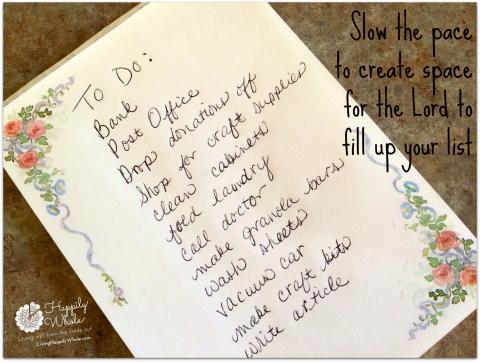 Slow the pace
to create space
for the Lord to
fill up your list
To Do:
Bank
Post Office
Drop donations off
Shop for craft supplies
clean cabinets
fold laundry
call doctor
make granola bars
wash sheets
vacuum car
make craft kits
write article
Happily
Whole
Living well from the inside out
LivingHappilyWhole.com